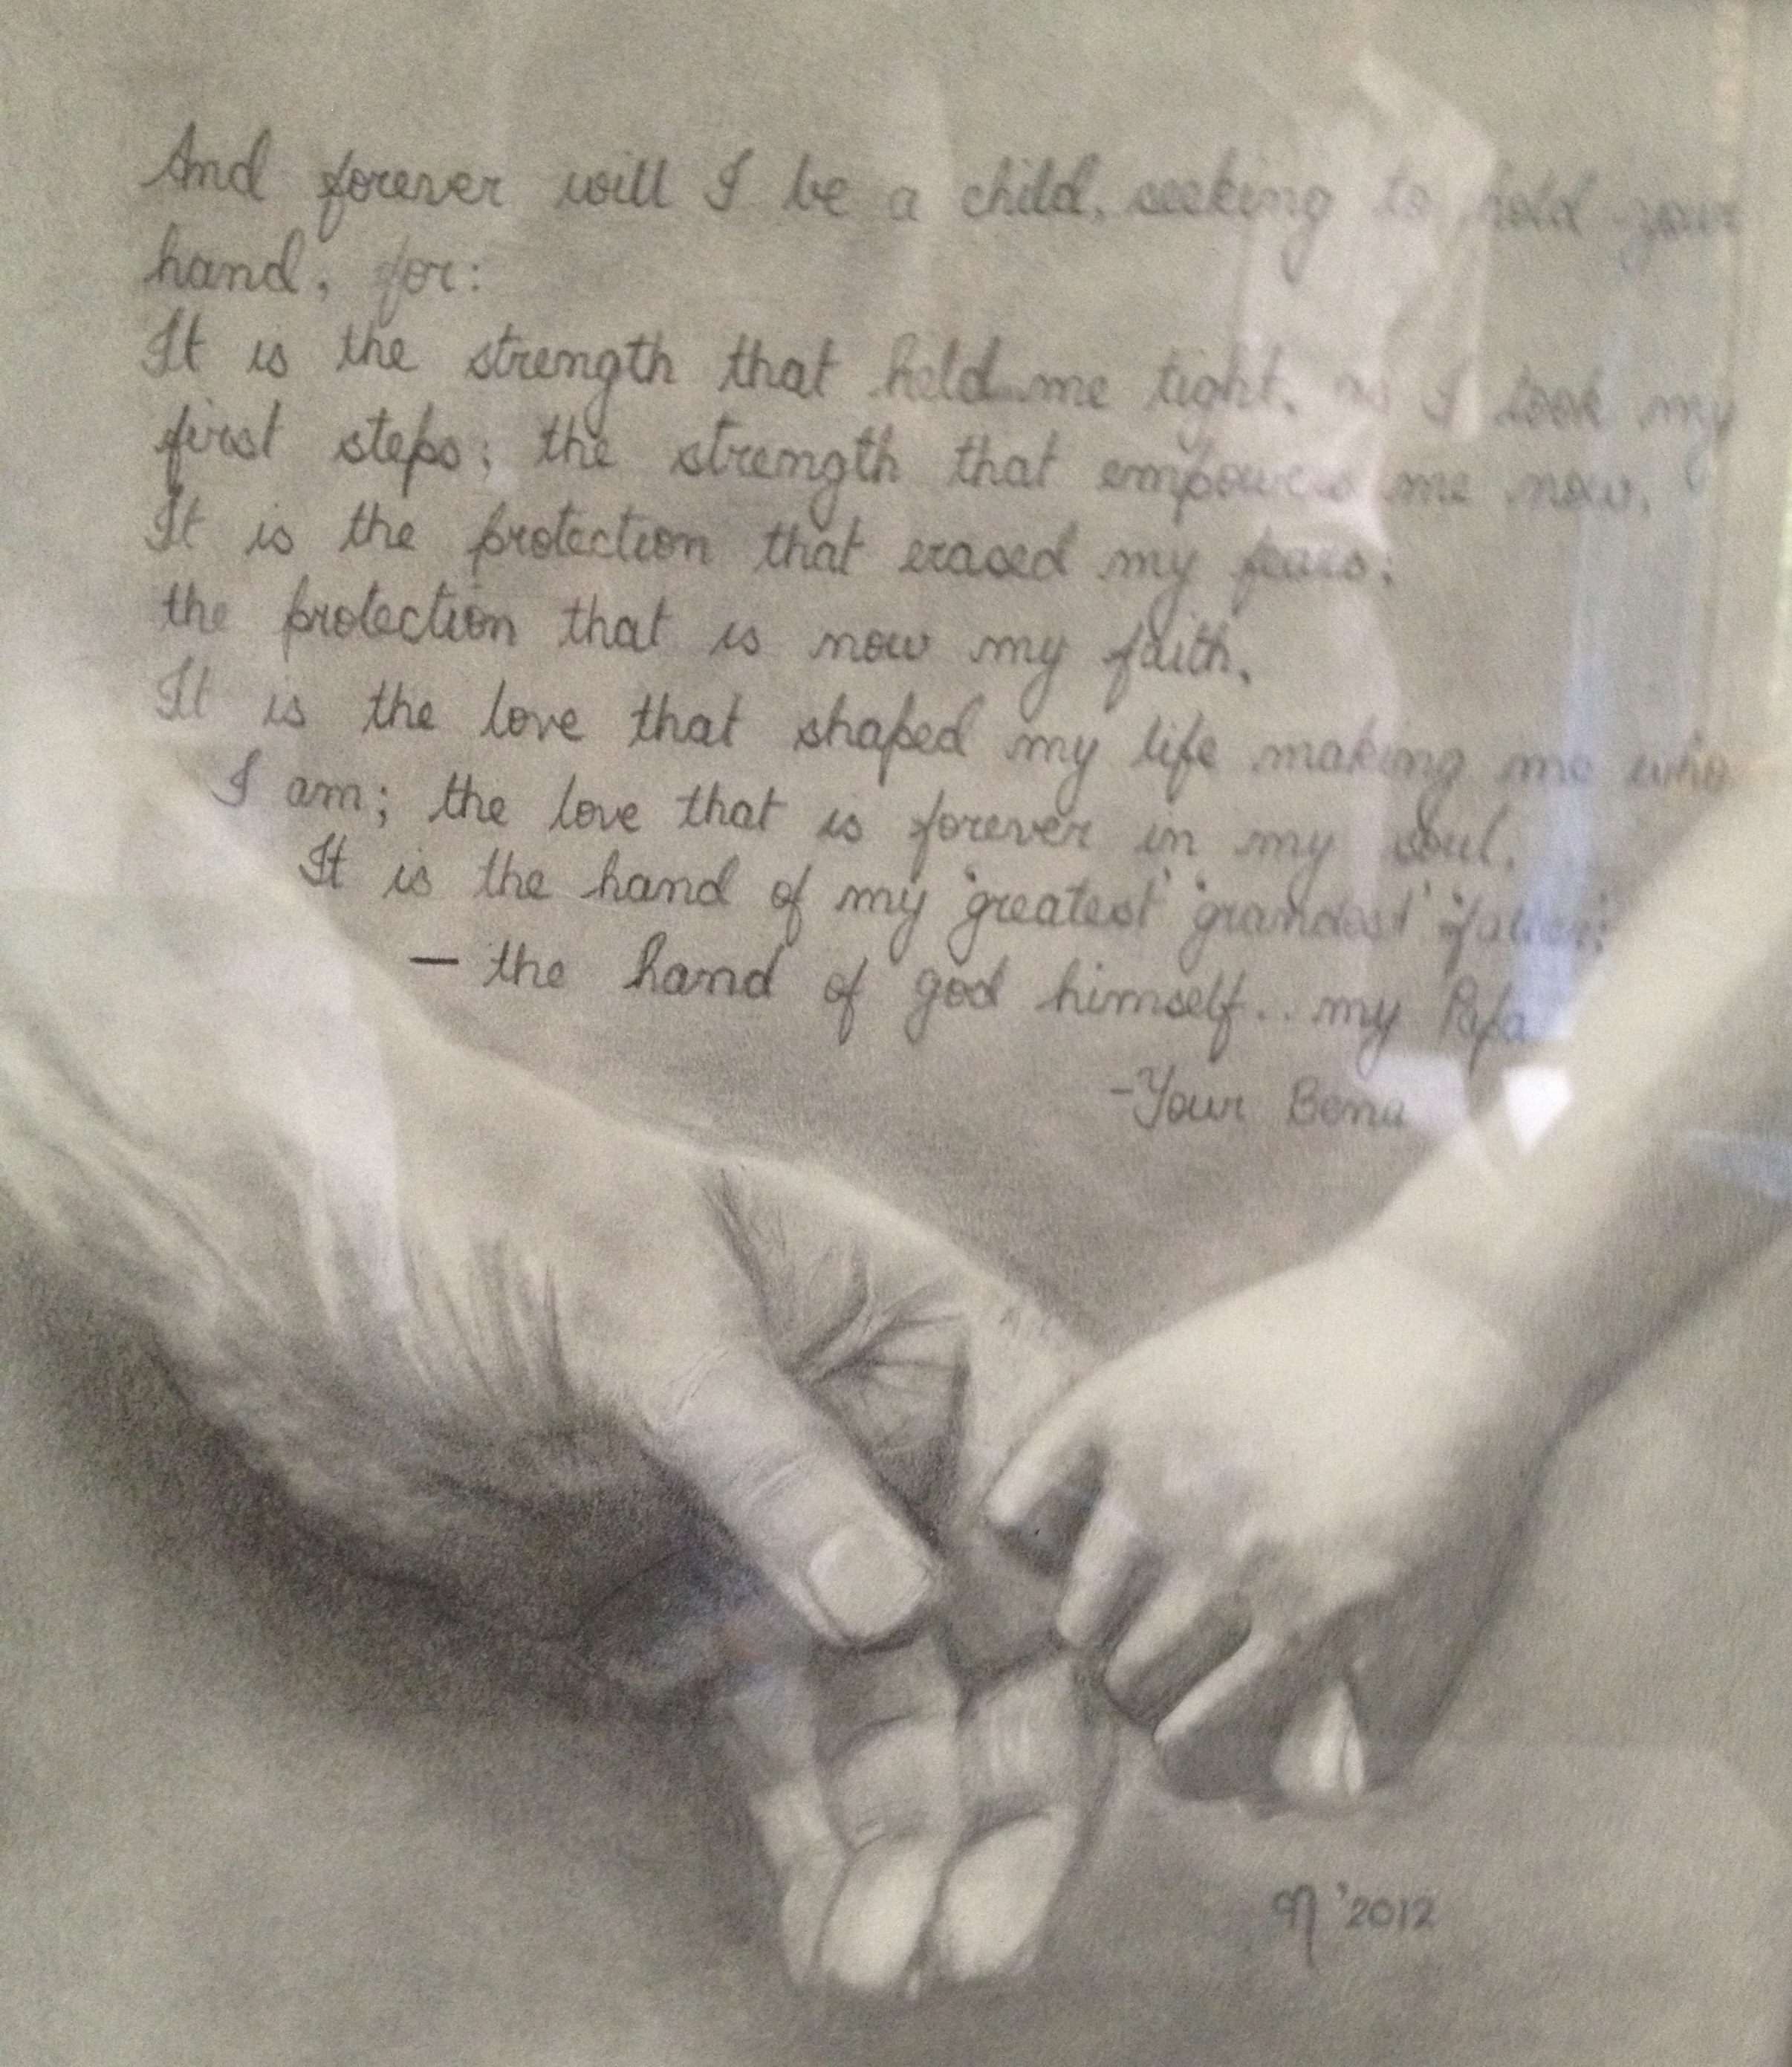 And forever will I be a child, seeking to hold your
hand, for:
It is the strength that held me tight, as I took my
first steps; the strength that empowers me now.
It is the protection that erased my fears;
the protection that is now my faith.
It is the love that shaped my life making me who
I am; the love that is forever in my soul.
It is the hand of my 'greatest' 'grandest' 'father';
— the hand of god himself... my Papa
-Your Bena
'2012